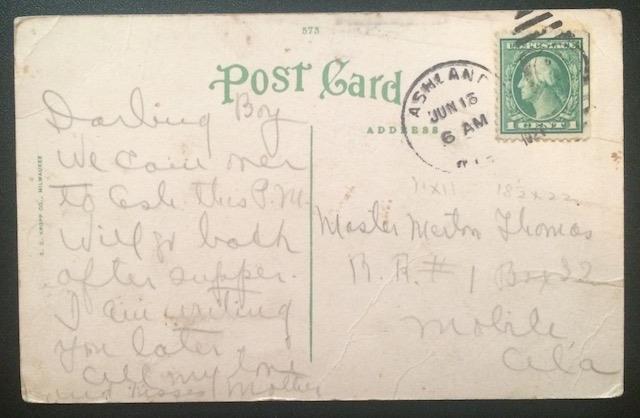 573
Post Card
ADDRESS
ASHLAND
JUN 16
6 AM
WIS
U.S. POSTAGE
1 CENT 1
E. C. KROPP CO., MILWAUKEE
Darling Boy
We came over
to Ash. this P.M.
Will go back
after supper.
I am writing
you later.
all my love
and kisses Mother
11x11 18 2x22
Master Merton Thomas
R.R. # 1 Box 32
Mobile
Ala